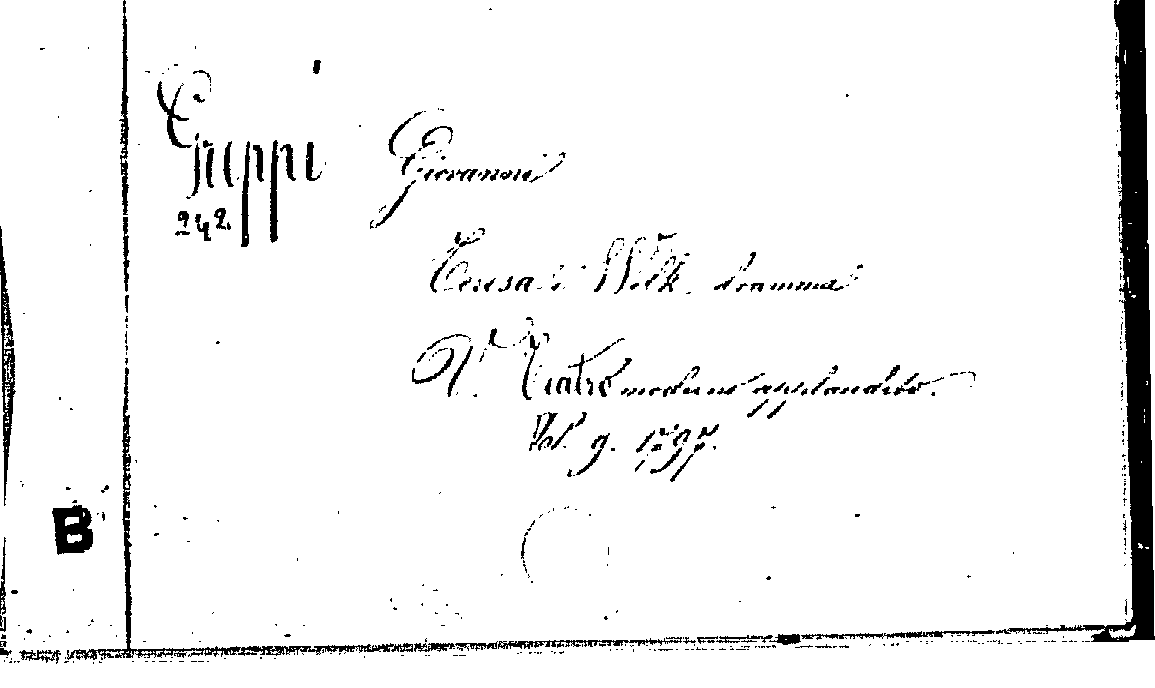 Greppi Giovanni
242
Teresa e Wilk. dramma
V. Teatro moderno applaudito.
Vol. 9. 1797.
B